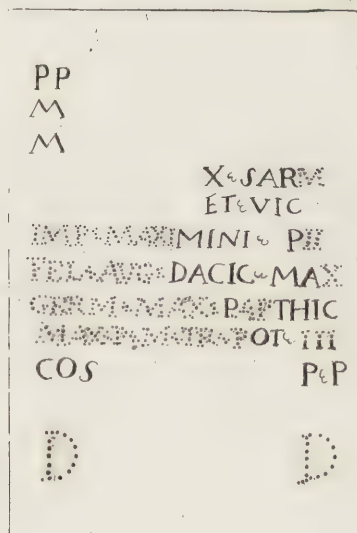 PP
M
M
X SARM
ET VIC
IMP MAXIMINI PII
TEL AVG DACIC MAX
GERM MAX PARTHIC
POT III
COS P P
D D